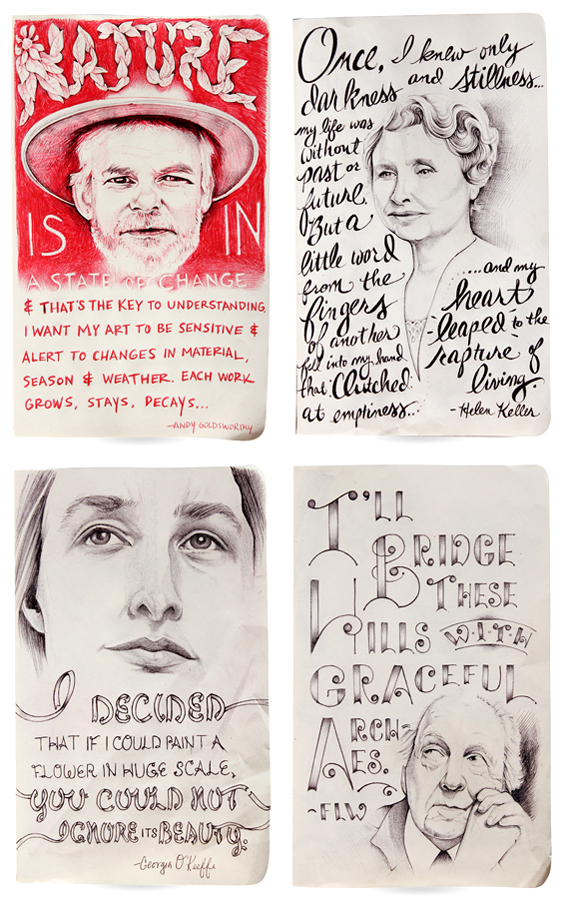 NATURE
IS IN
A STATE OF CHANGE
& THAT'S THE KEY TO UNDERSTANDING.
I WANT MY ART TO BE SENSITIVE &
ALERT TO CHANGES IN MATERIAL,
SEASON & WEATHER. EACH WORK
GROWS, STAYS, DECAYS...
-ANDY GOLDSWORTHY
Once, I knew only
darkness and stillness...
my life was
without
past or
future.
But a
little word
from the
fingers
of another
fell into my hand
that clutched
at emptiness...
...and my
heart
leaped to the
rapture of
living.
- Helen Keller
I DECIDED
THAT IF I COULD PAINT A
FLOWER IN HUGE SCALE,
YOU COULD NOT
IGNORE ITS BEAUTY.
-Georgia O'Keeffe
I'LL
BRIDGE
THESE
HILLS WITH
GRACEFUL
ARCH-
ES.
-FLW